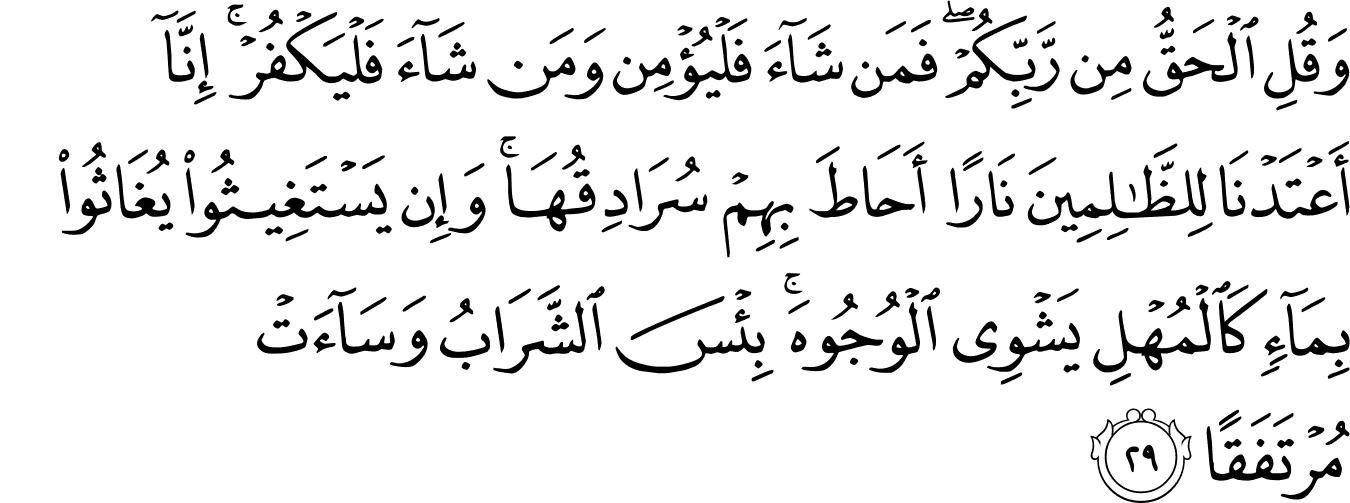 وَقُلِ ٱلْحَقُّ مِن رَّبِّكُمْ ۖ فَمَن شَآءَ فَلْيُؤْمِن وَمَن شَآءَ فَلْيَكْفُرْ ۚ إِنَّآ
أَعْتَدْنَا لِلظَّـٰلِمِينَ نَارًا أَحَاطَ بِهِمْ سُرَادِقُهَا ۚ وَإِن يَسْتَغِيثُوا۟ يُغَاثُوا۟
بِمَآءٍ كَٱلْمُهْلِ يَشْوِى ٱلْوُجُوهَ ۚ بِئْسَ ٱلشَّرَابُ وَسَآءَتْ
مُرْتَفَقًا ٢٩